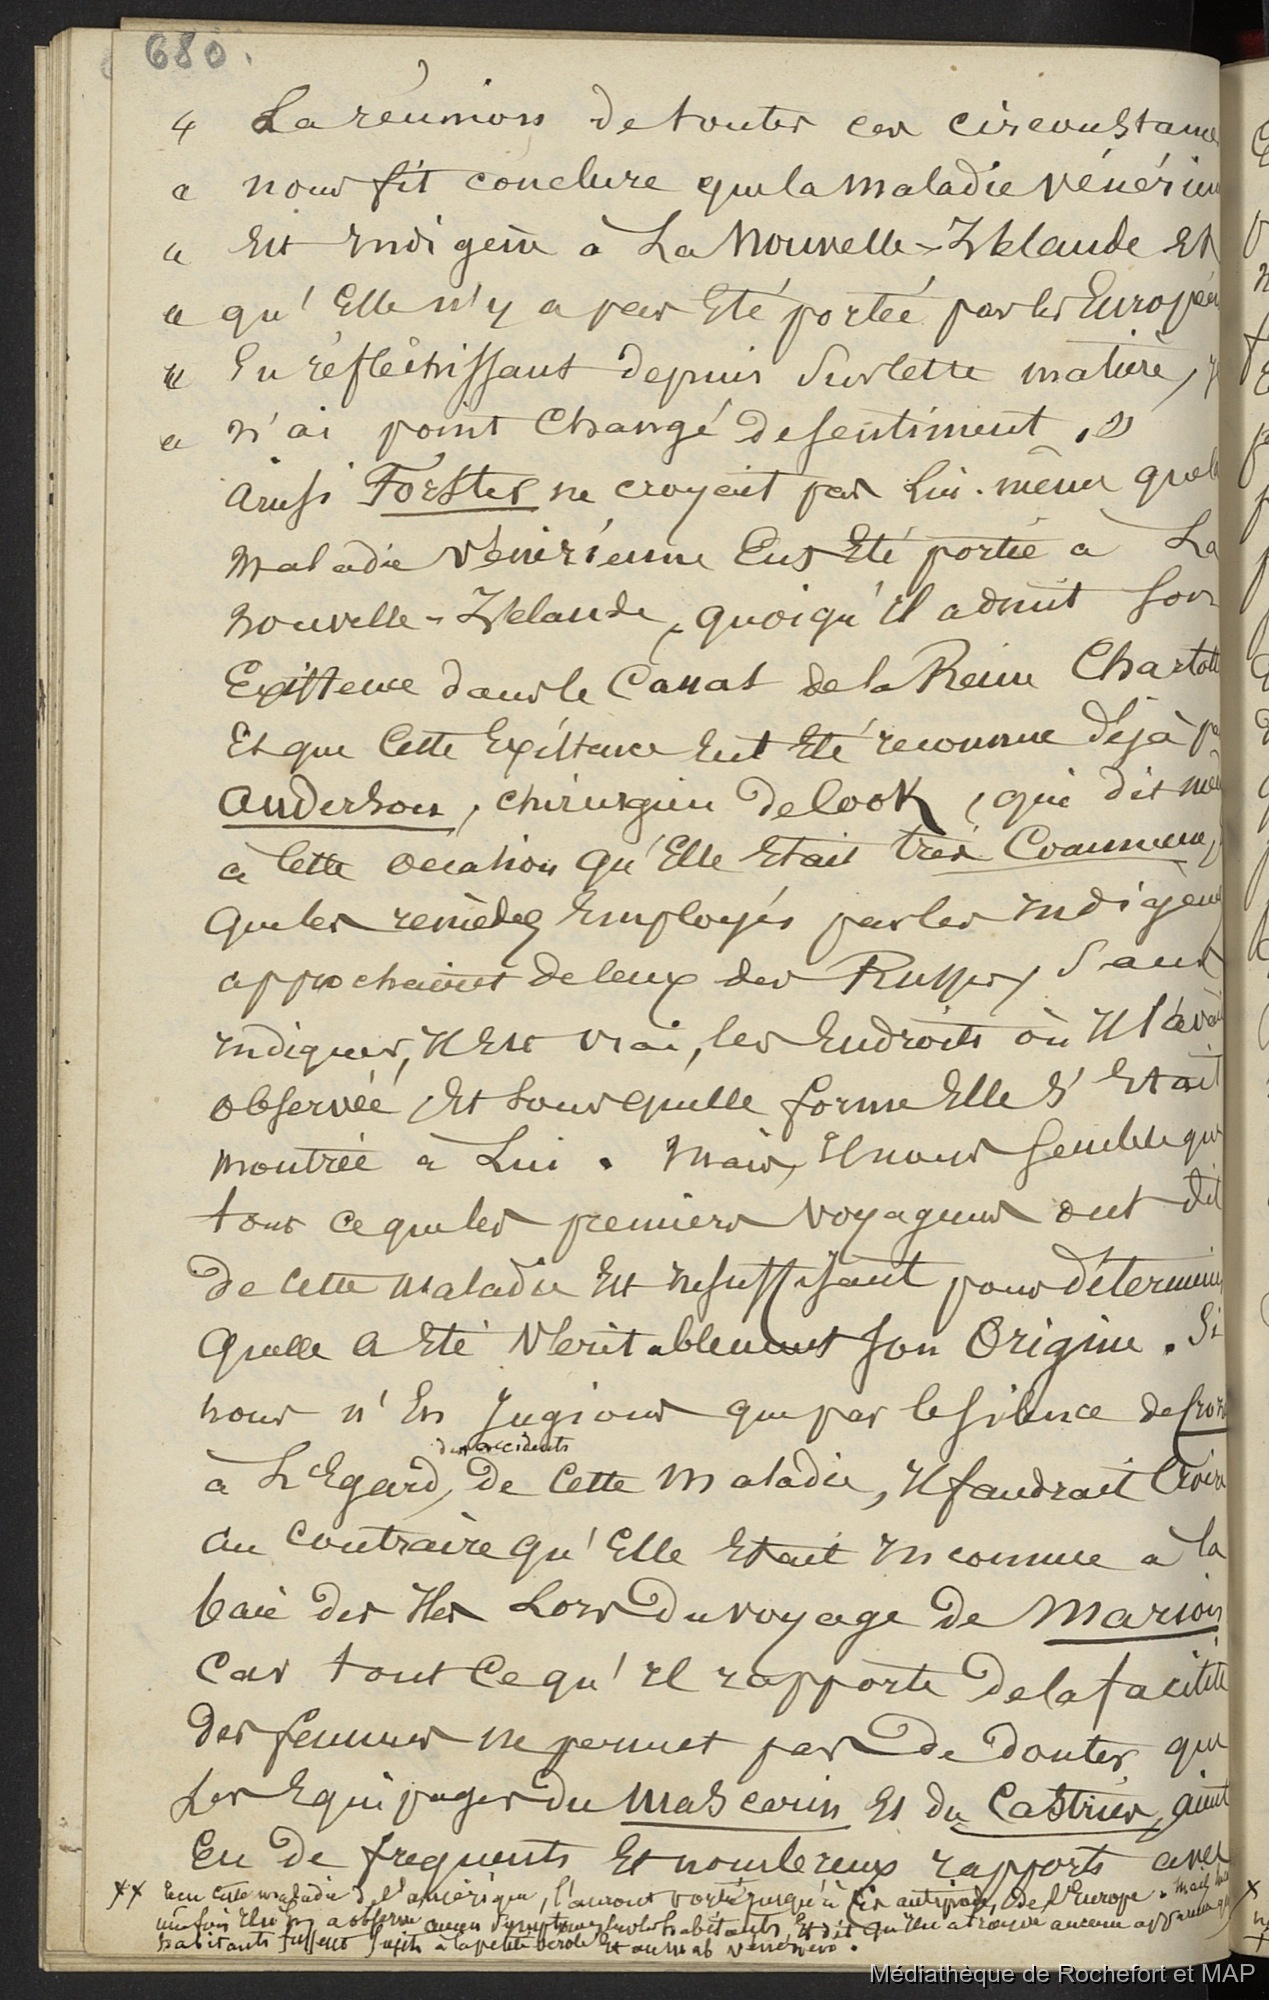 680.
« La réunion de toutes ces circonstances
« nous fit conclure que la maladie vénérienne
« Est Indigène à La Nouvelle-Zélande Et
« qu'Elle n'y a pas Eté portée par les Européens
« En réfléchissant depuis sur cette matière, je
« n'ai point Changé de sentiment. »
ainsi Forster ne croyait pas Lui-même que la
maladie Vénérienne Eut Eté portée à La
nouvelle-Zélande, quoiqu'il admit son
Existence dans le Canal de la Reine Charlotte
Et que Cette Existence Eut Eté reconnue déjà par
Anderson, chirurgien de Cook, qui dit même
à Cette occasion qu'Elle Etait très Commune,
que les remèdes Employés par les Indigènes
approchaient de ceux des Russes, sans
indiquer, il Est vrai, les Endroits où il l'avait
observée, Et sous quelle forme Elle s'Etait
montrée à Lui. Mais, il nous semble que
tout ce que les premiers voyageurs ont dit
de Cette maladie Est insuffisant pour déterminer
quelle a Eté Véritablement son Origine. Si
nous n'En Jugions que par le silence de Crozet
des accidents
à L'Egard, de Cette maladie, il faudrait Croire
au Contraire qu'Elle Etait inconnue à la
baie des Iles Lors du voyage de Marion
Car tout Ce qu'il rapporte de la facilité
des femmes ne permet pas de douter que
Les Equipages du Mascarin Et du Castries, aient
Eu de fréquents Et nombreux rapports avec
** Eeu Cette maladie de l'amérique, l'auront portée jusqu'à ces antipodes, de l'Europe. Mais
une fois observe aucun symptomes les habitants, Et dit qu'Elle a trouve aucune apparence que
habitants fussent sujets à la petite verole Et au mal vénérien.
Médiathèque de Rochefort et MAP